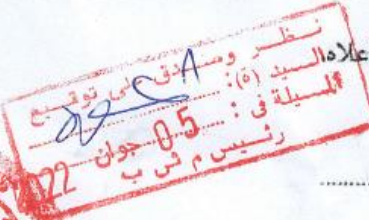 نظر وصدق على توقيع
السيد (ة): علاه
المسيلة في : 05 جوان 2022
رئيس م ش ب